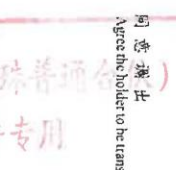 同意转出
Agree the holder to be trans
殊普通合伙)
专用